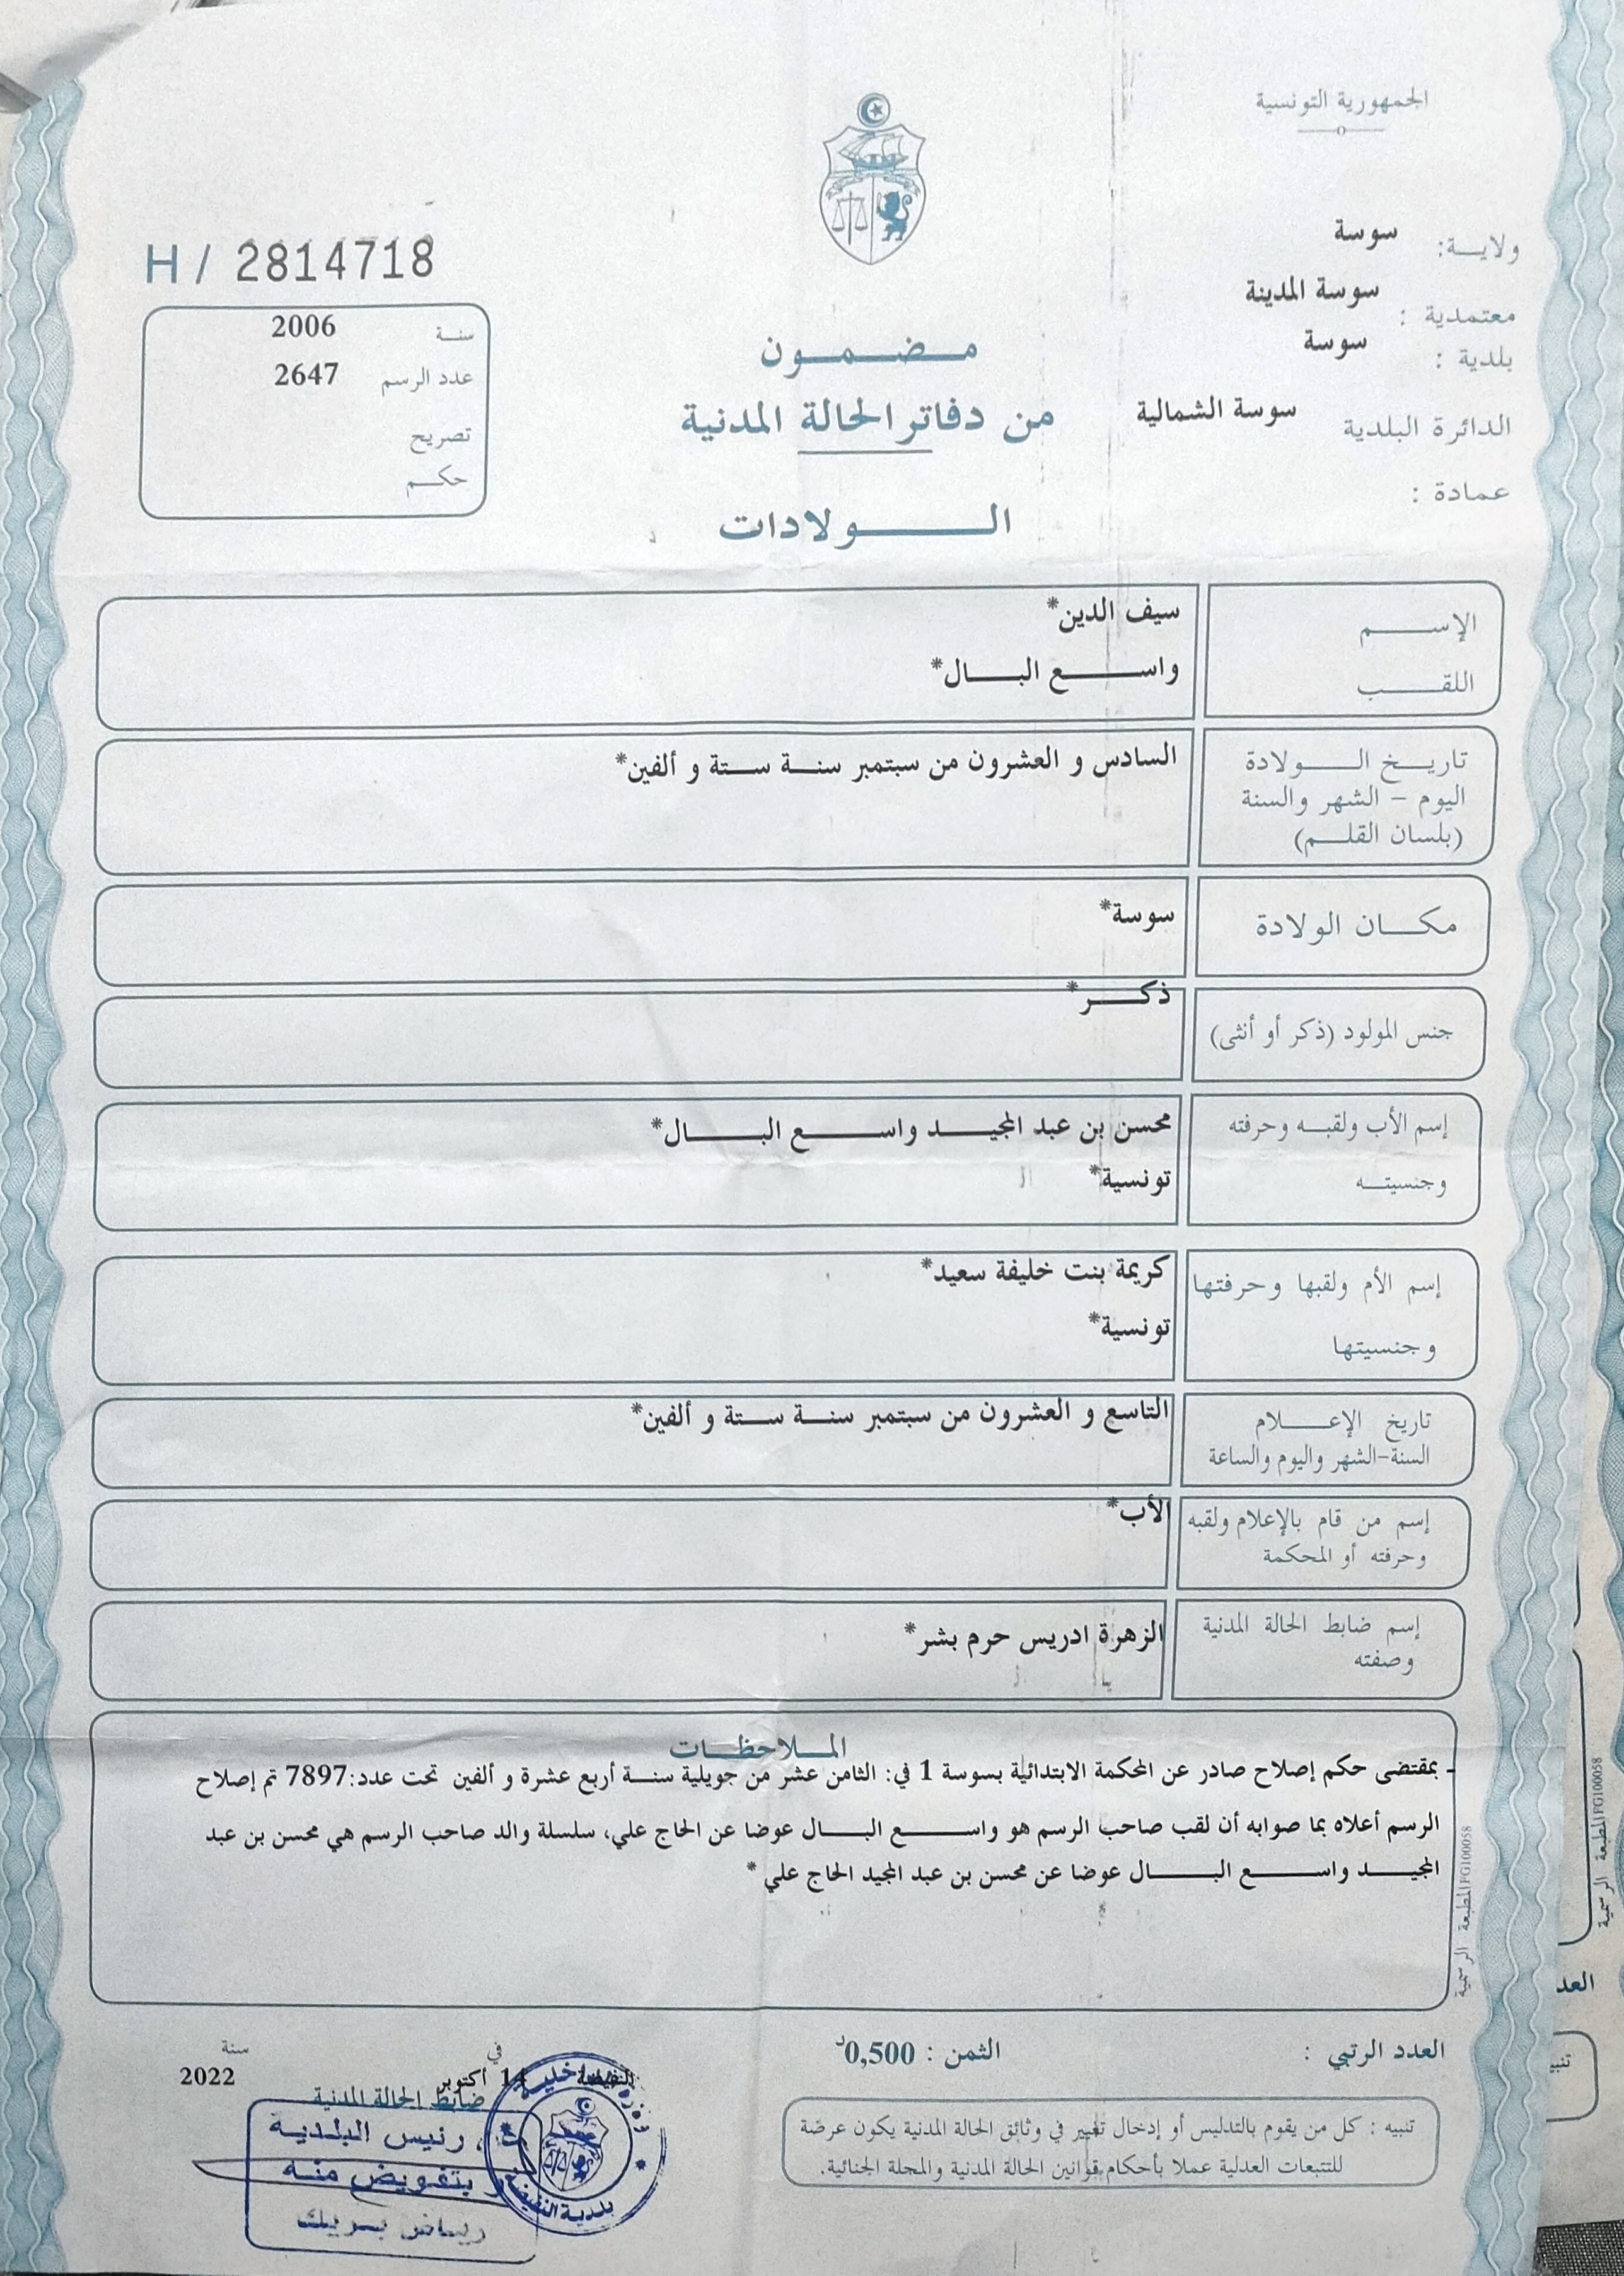 الجمهورية التونسية
ولاية: سوسة
معتمدية : سوسة المدينة
بلدية : سوسة
الدائرة البلدية سوسة الشمالية
عمادة :
H / 2814718
سنة 2006
عدد الرسم 2647
تصريح
حكم
مضمون
من دفاتر الحالة المدنية
الولادات
الإسم سيف الدين*
اللقب واسع البال*
تاريخ الولادة السادس و العشرون من سبتمبر سنة ستة و ألفين*
اليوم - الشهر والسنة
(بلسان القلم)
مكان الولادة سوسة*
جنس المولود (ذكر أو أنثى) ذكر*
إسم الأب ولقبه وحرفته محسن بن عبد المجيد واسع البال*
وجنسيته تونسية*
إسم الأم ولقبها وحرفتها كريمة بنت خليفة سعيد*
وجنسيتها تونسية*
تاريخ الإعلام التاسع و العشرون من سبتمبر سنة ستة و ألفين*
السنة-الشهر واليوم والساعة
إسم من قام بالإعلام ولقبه الأب*
وحرفته أو المحكمة
إسم ضابط الحالة المدنية الزهرة ادريس حرم بشر*
وصفته
الملاحظات
- بمقتضى حكم إصلاح صادر عن المحكمة الابتدائية بسوسة 1 في: الثامن عشر من جويلية سنة أربع عشرة و ألفين تحت عدد:7897 تم إصلاح
الرسم أعلاه بما صوابه أن لقب صاحب الرسم هو واسع البال عوضا عن الحاج علي، سلسلة والد صاحب الرسم هي محسن بن عبد
المجيد واسع البال عوضا عن محسن بن عبد المجيد الحاج علي *
المطبعة الرسمية PG100058
المطبعة الرسمية PG100058
العدد الرتبي :
الثمن : 0,500د
في 14 أكتوبر سنة 2022
ضابط الحالة المدنية
رئيس البلدية
وبتفويض منه
رياض بريك
بلدية النفيضة
تنبيه : كل من يقوم بالتدليس أو إدخال تغيير في وثائق الحالة المدنية يكون عرضة
للتتبعات العدلية عملا بأحكام قوانين الحالة المدنية والمجلة الجنائية.